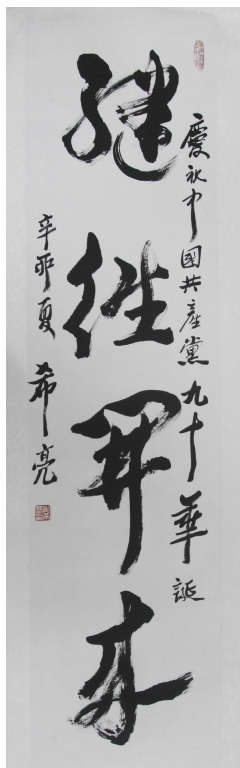 慶祝中國共產黨九十華誕
继往開来
辛卯夏 希亮